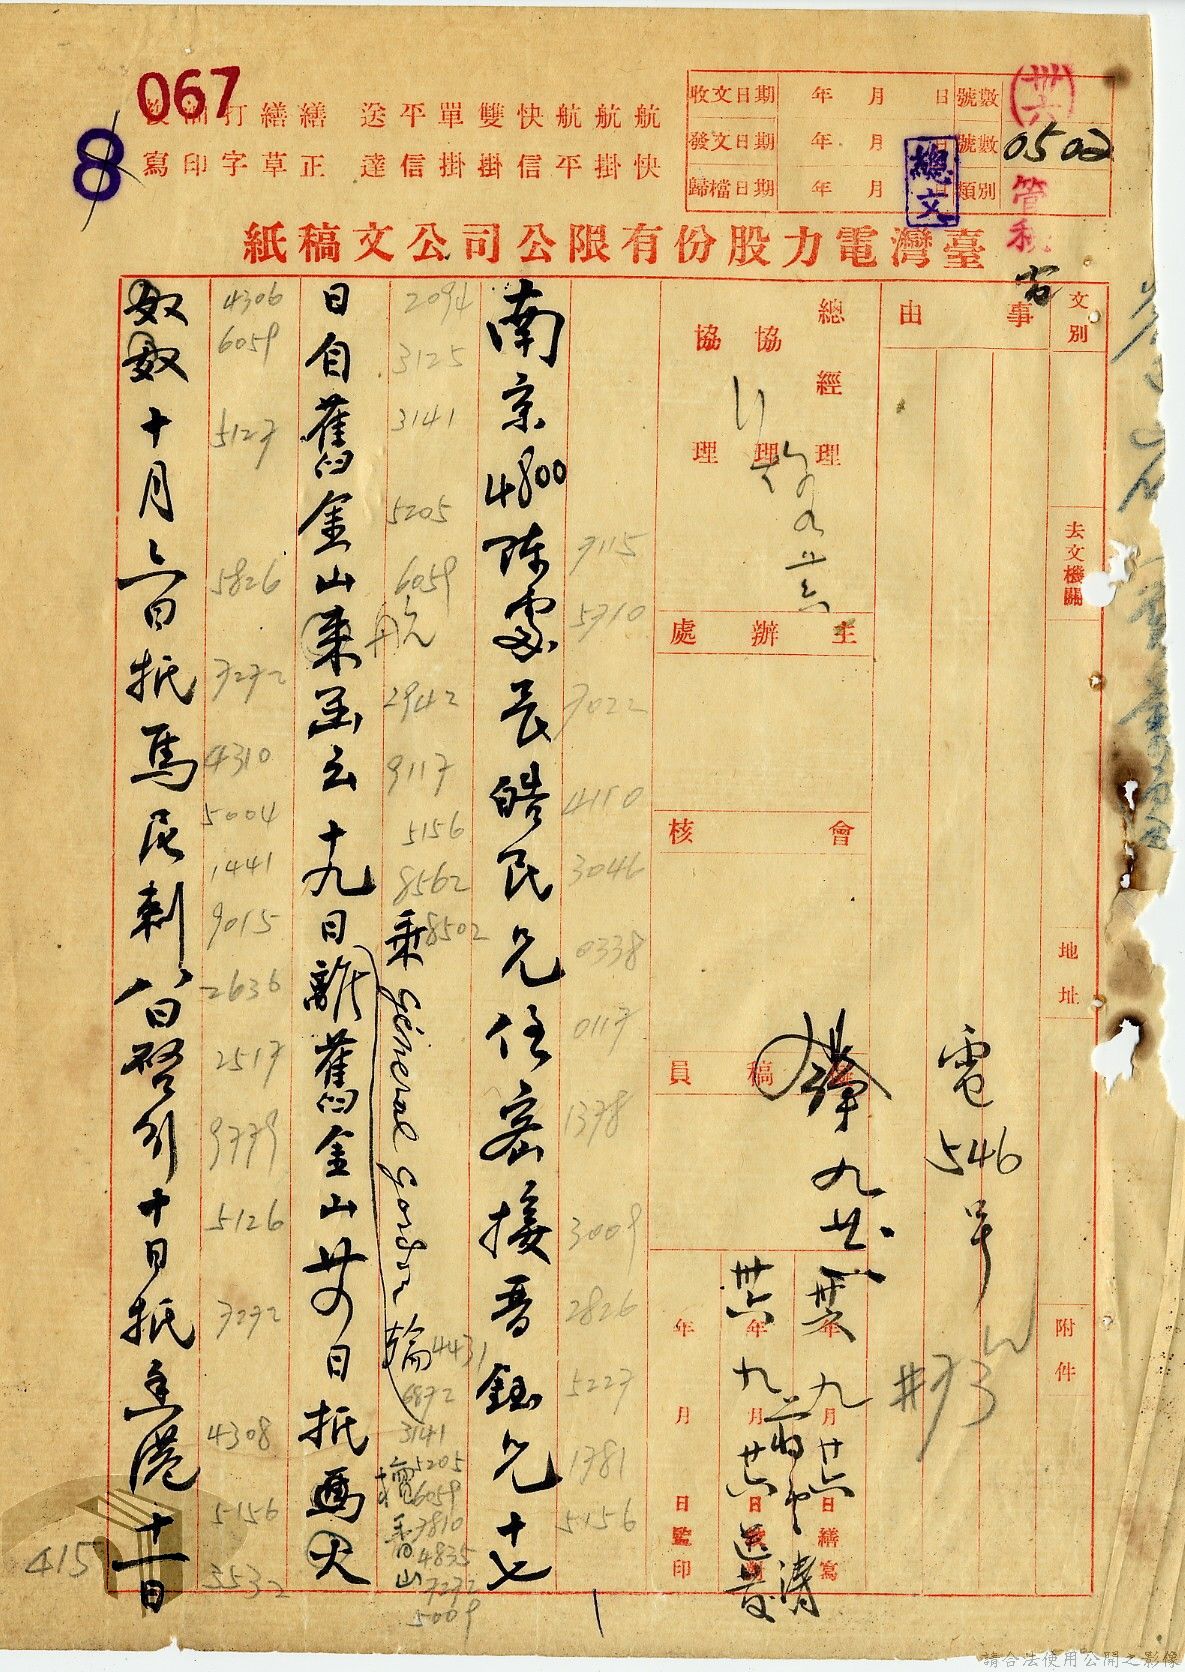 067
8
航快
航掛
航平
快信
雙掛
單掛
平信
送達
繕正
繕草
打字
油印
寫
收文日期 年 月 日 號數
發文日期 年 月 日 號數 0502
歸檔日期 年 月 日 類別
總文
臺灣電力股份有限公司文稿紙
文別
去文機關
地址
附件
事由
電546號
總經理
協理
協理
主辦處
會核
擬稿員
年月日繕寫
年月日
年月日監印
南京4800陳處長皓民兄住密接晉鈺兄十七
日自舊金山來函云十九日離舊金山廿四日抵
乘 General Gordon 輪
檀香山
十月六日抵馬尼剌八日啓行十日抵香港十一日
7115
5710
7022
4110
3046
0338
0117
1378
3009
2826
5227
1781
5156
2094
3125
3141
5205
6059
航
2942
9117
5156
8562
8502
4431
6872
3141
5205
6059
7810
4835
7272
5009
4306
6059
5127
5826
7272
4310
5004
1441
9015
2636
2517
9779
5126
7272
4308
5156
3532
415
請合法使用公開之影像